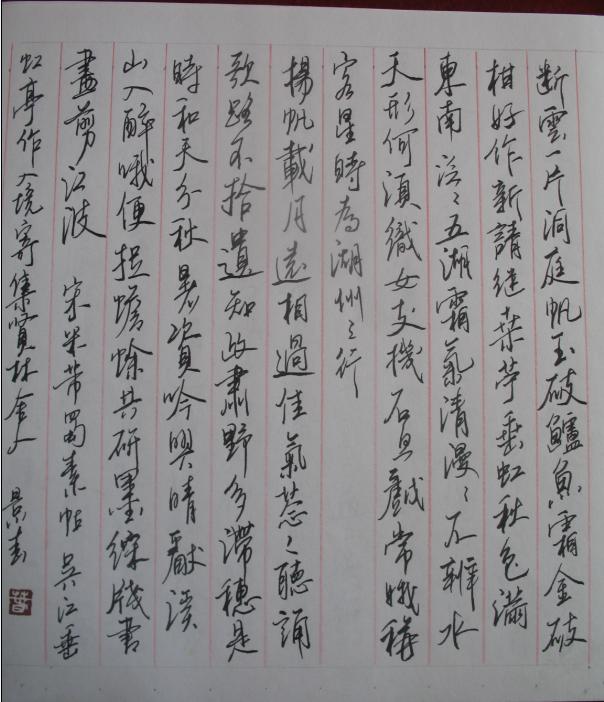 断雲一片洞庭帆玉破鱸魚霜金破
柑好作新詩继桒苧垂虹秋色滿
東南泛〻五湖霜氣清漫〻不辨水
天形何須織女支機石且戲常娥稱
客星時為湖州之行
揚帆載月遠相過佳氣葱〻聽誦
歌路不拾遺知政肅野多滯穗是
時和天分秋暑資吟興晴獻溪
山入醉哦便捉蟾蜍共研墨綵牋書
盡剪江波 宋米芾蜀素帖 吳江垂
虹亭作 入境寄集賢林舍人 景春